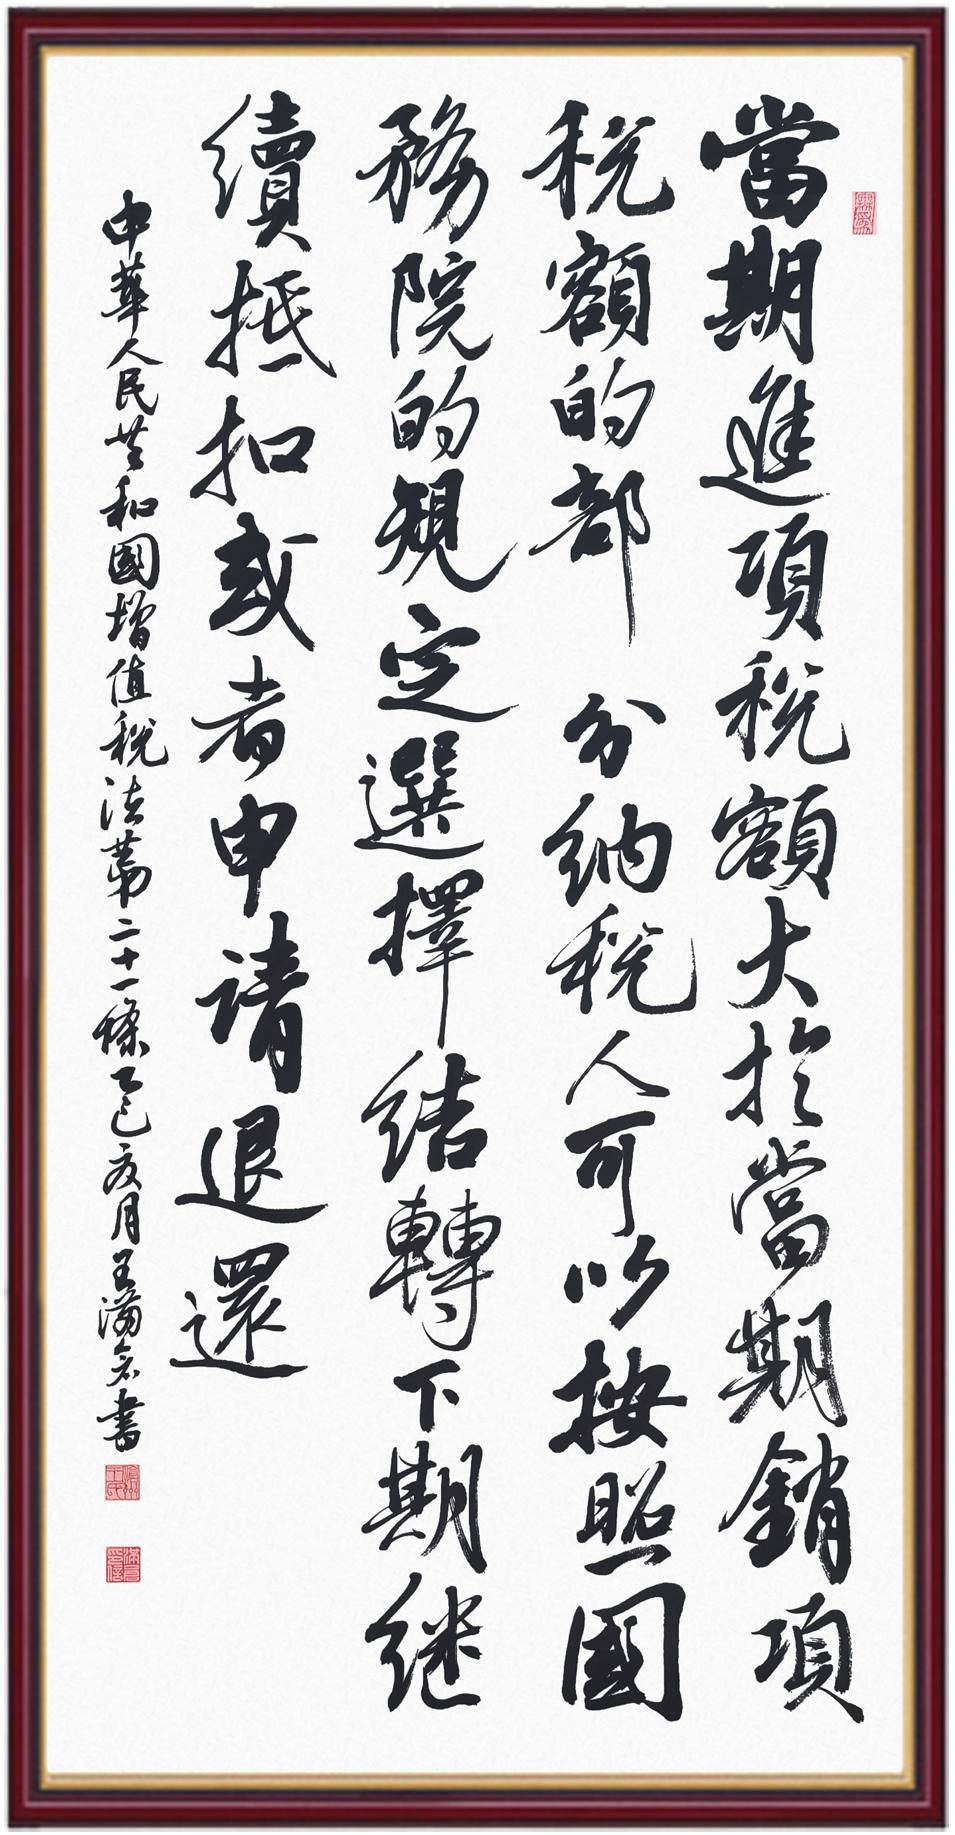 當期進項税額大於當期銷項
税額的部分納税人可以按照國
務院的規定選擇結轉下期继
續抵扣或者申请退還
中華人民共和國增值税法第二十一條乙巳夜月王满意書